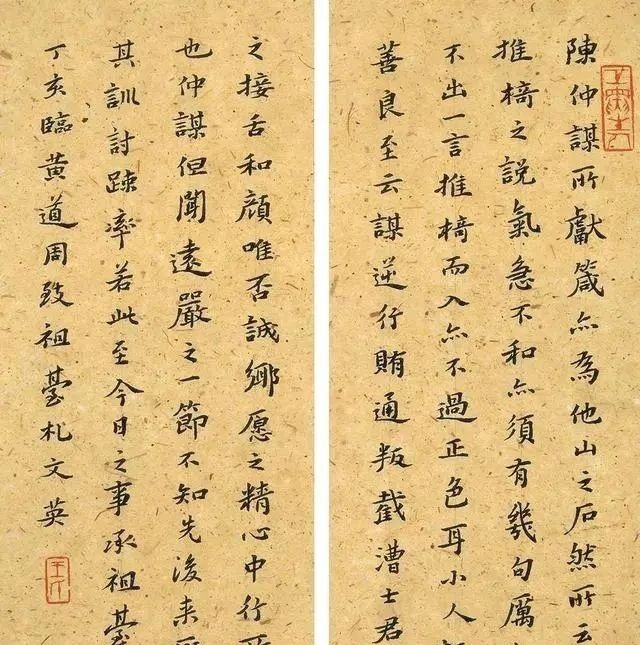 陳仲謀所獻箴亦為他山之石然所云
推橋之說氣急不和亦須有幾句厲
不出一言推橋而入亦不過正色耳小人
善良至云謀逆行賄通叛截漕士君
之接舌和顏唯否誠鄉愿之精心中行所
也仲謀但聞遠嚴之一節不知先後来
其訓討踈率若此至今日之事承祖臺
丁亥臨黃道周致祖臺札文英